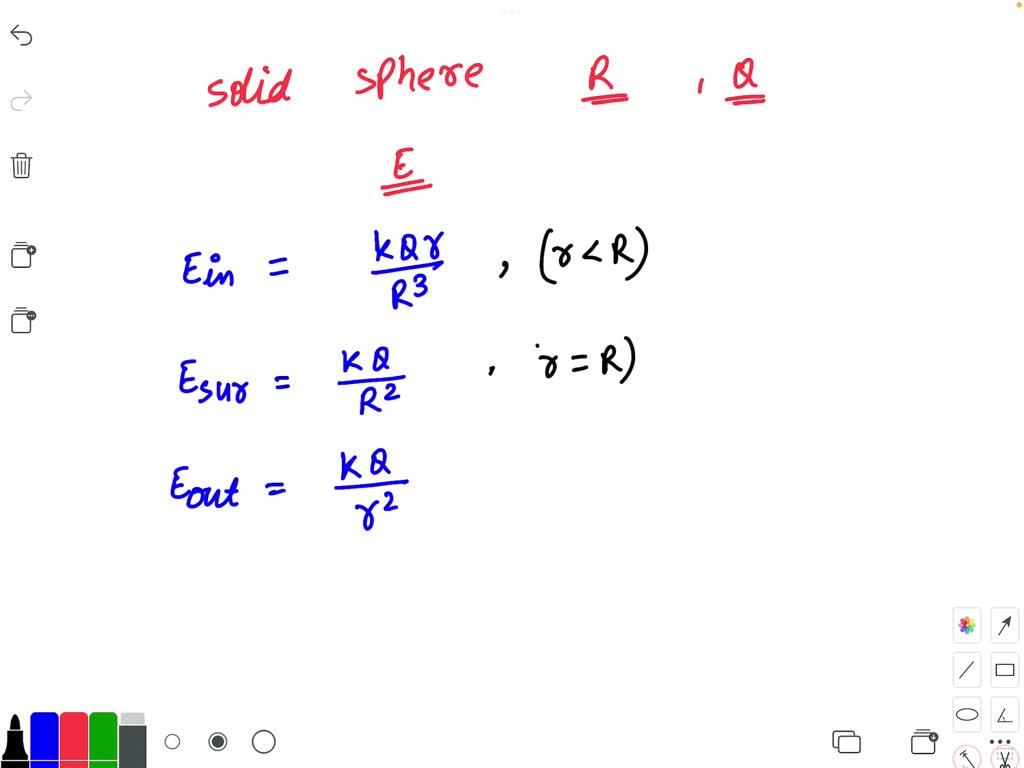 solid sphere R , Q
E
Ein = KQr/R³ , (r < R)
Esur = KQ/R² , r = R)
Eout = KQ/r²